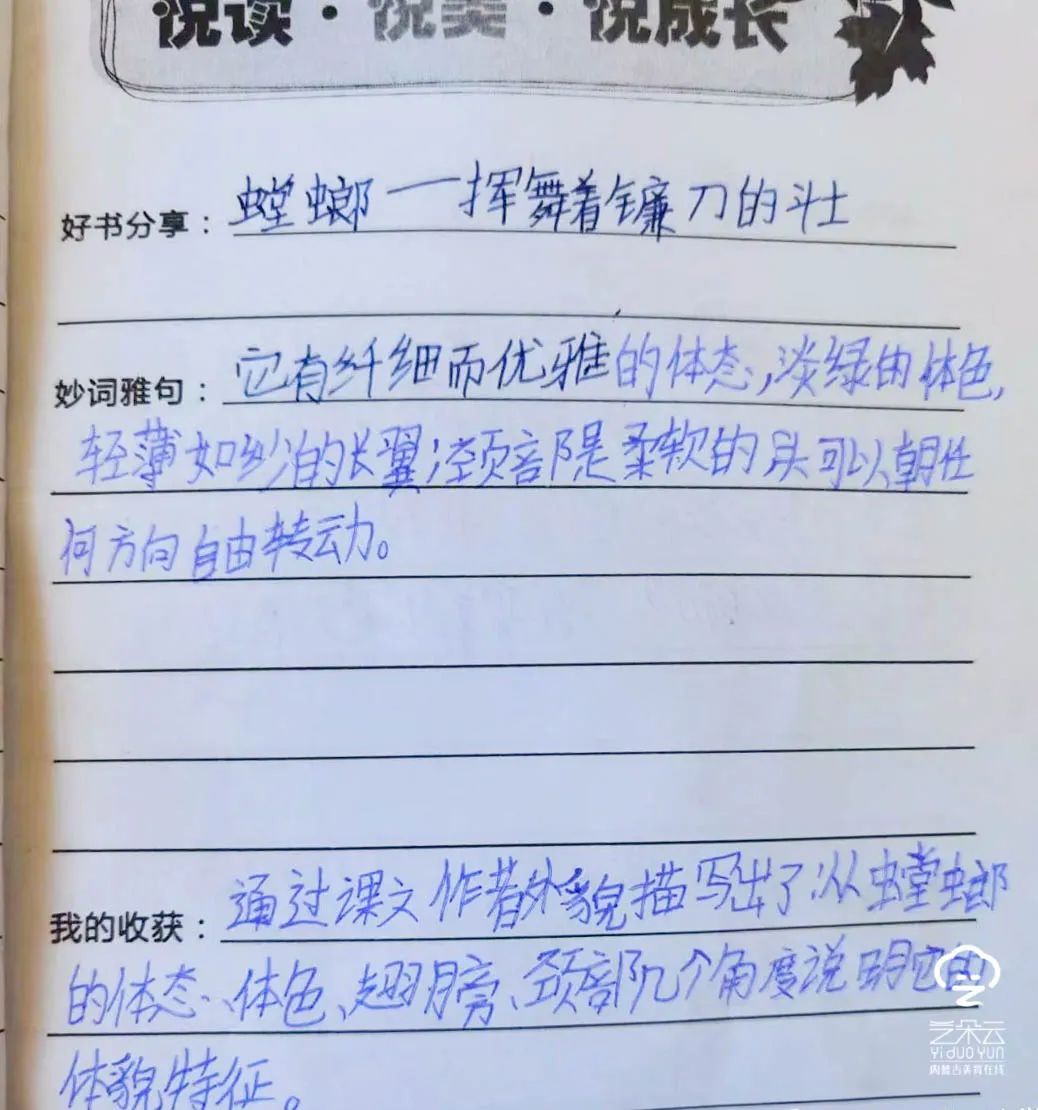 悦读·悦美·悦成长
好书分享：螳螂一挥舞着镰刀的斗士
妙词雅句：它有纤细而优雅的体态,淡绿的体色,
轻薄如纱的长翼;颈部是柔软的,头可以朝任
何方向自由转动。
我的收获：通过课文作者外貌描写出了从螳螂
的体态、体色、翅膀、颈部几个角度说明它的
体貌特征。
艺朵云
YiDUOYUN
内蒙古美育在线